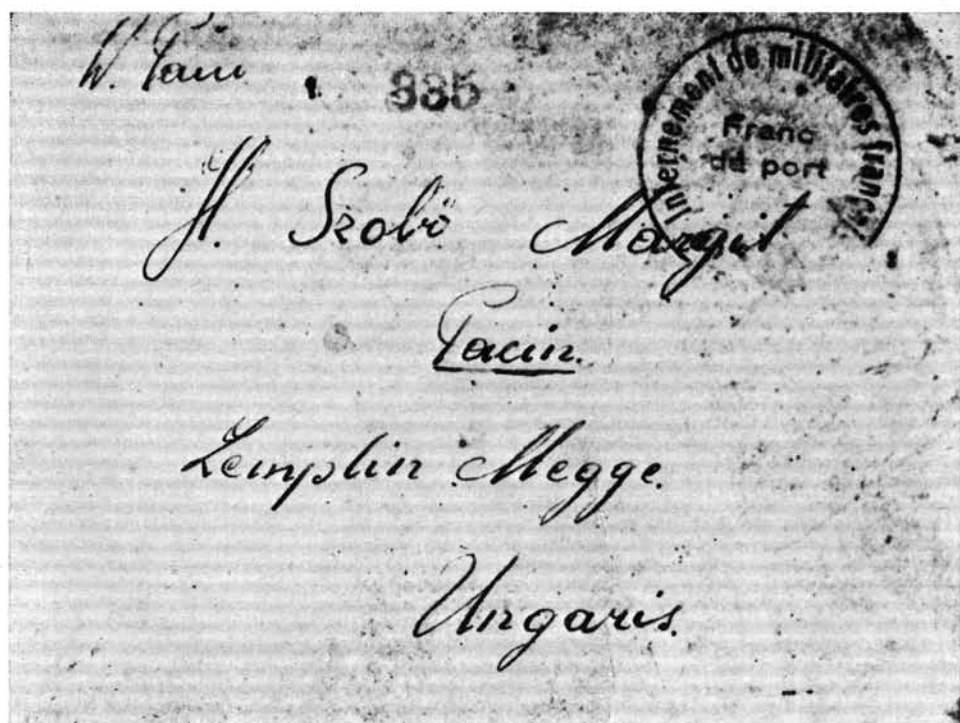 335
Internement de militaires franç
Franc
de port
H. Szobö Margit
Pacin.
Zemplin Megge.
Ungaris.